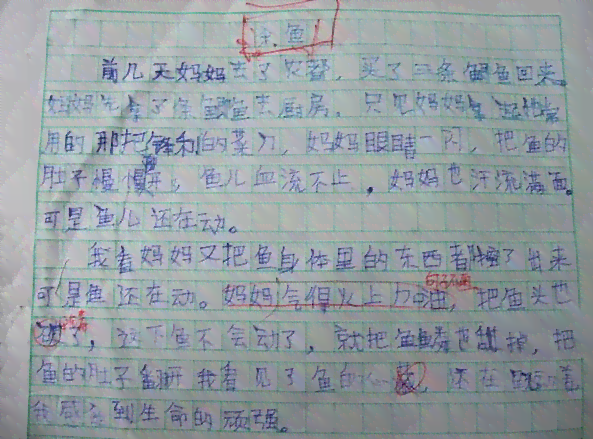 杀鱼
前几天妈妈去了农贸,买了三条鲫鱼回来。
妈妈先拿了条鲫鱼去厨房,只见妈妈拿起她常
用的那把锋利的菜刀,妈妈眼睛一闪,把鱼的
肚子慢慢开,鱼儿血流不止,妈妈也汗流满面。
可是鱼儿还在动。
我看妈妈又把鱼身体里的东西都掏了出来
可是鱼还在动。妈妈气得火上加油,把鱼头也
了,这下鱼不会动了,就把鱼鳞也掉,把
鱼的肚子翻开我看见了鱼的心,还在跳动着
我感到生命的顽强。